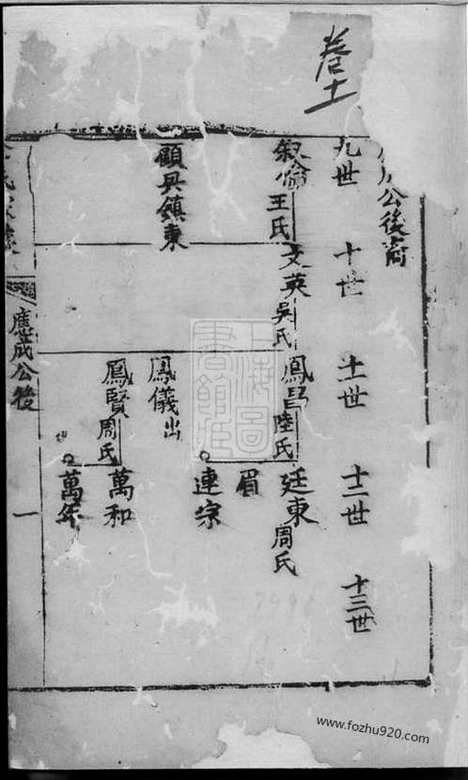 卷十
公後裔
九世
十世
十一世
十二世
十三世
叙倫
王氏
文英
吳氏
鳳昌
陸氏
廷東
周氏
眉
連宗
顧具鎮東
鳳儀出
鳳賢
周氏
萬和
萬年
應成公後
一
www.fozhu920.com